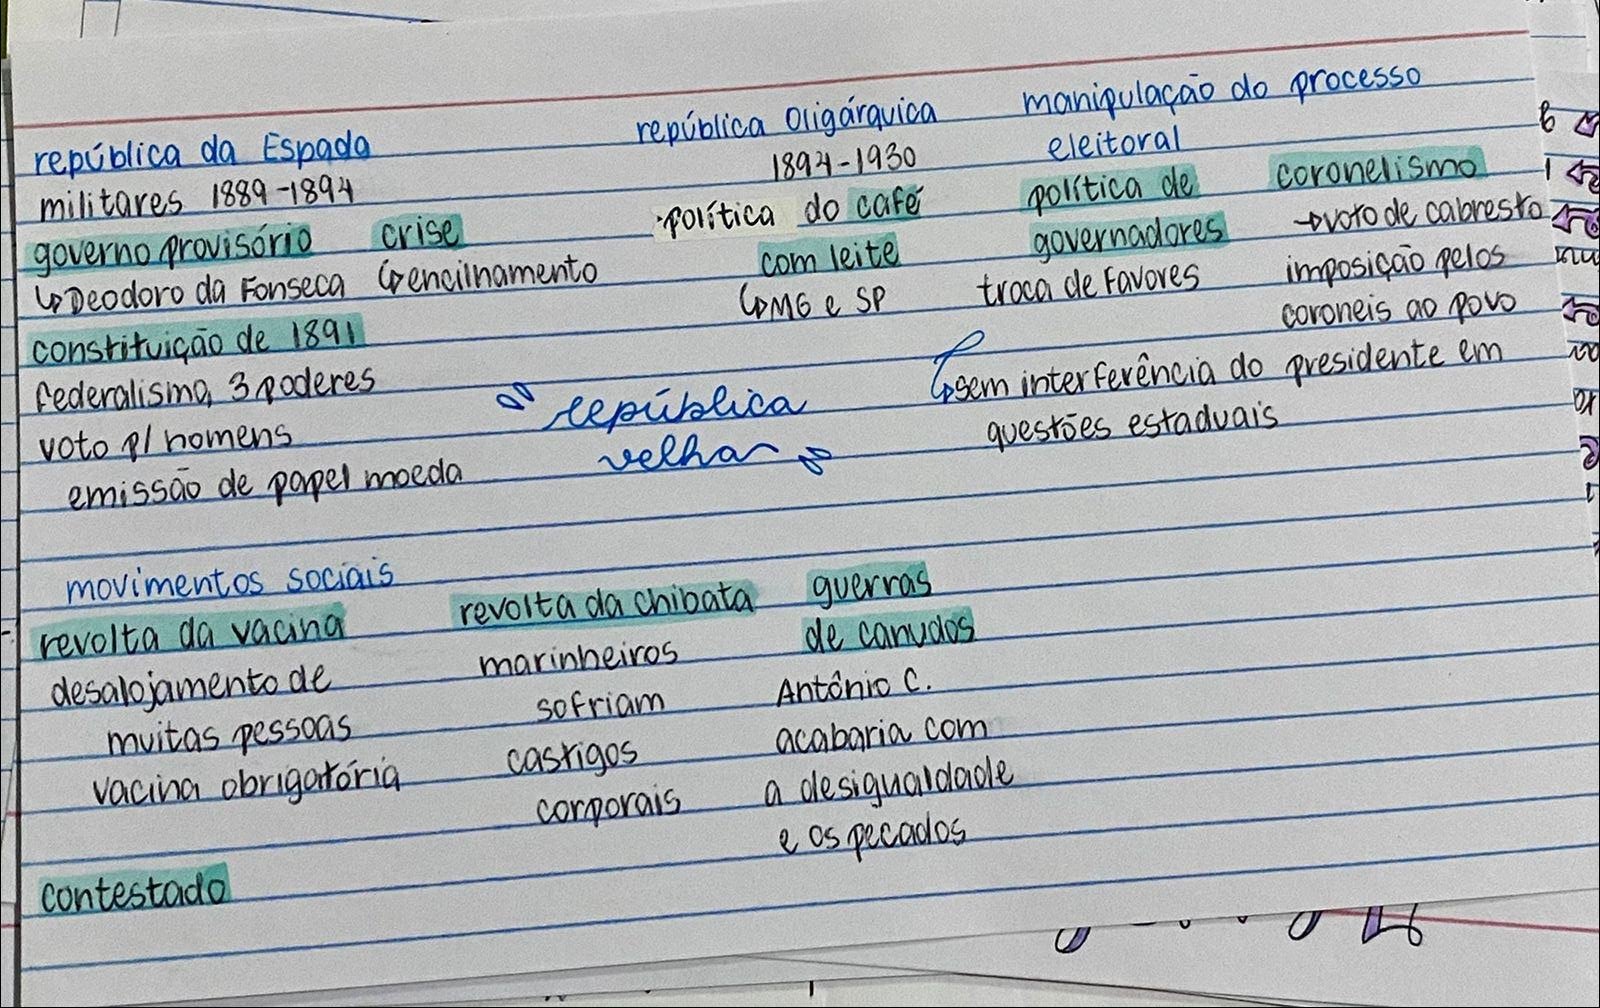 república da Espada
militares 1889-1894
governo provisório crise
↳Deodoro da Fonseca ↳encilhamento
constituição de 1891
federalismo, 3 poderes
voto p/ homens
emissão de papel moeda
república Oligárquica
1894-1930
política do café
com leite
↳MG e SP
manipulação do processo
eleitoral
política de
governadores
troca de favores
↳sem interferência do presidente em
questões estaduais
coronelismo
→voto de cabresto
imposição pelos
coroneis ao povo
república
velha
movimentos sociais
revolta da vacina
desalojamento de
muitas pessoas
vacina obrigatória
revolta da chibata
marinheiros
sofriam
castigos
corporais
guerras
de canudos
Antônio C.
acabaria com
a desigualdade
e os pecados
contestado